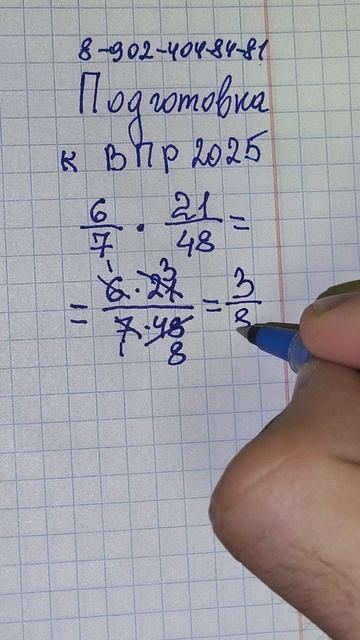 8-902-404-84-81
Подготовка
к ВПР 2025
6/7 · 21/48 =
= 6 · 21 / 7 · 48 = 3/8
1 3
1 8